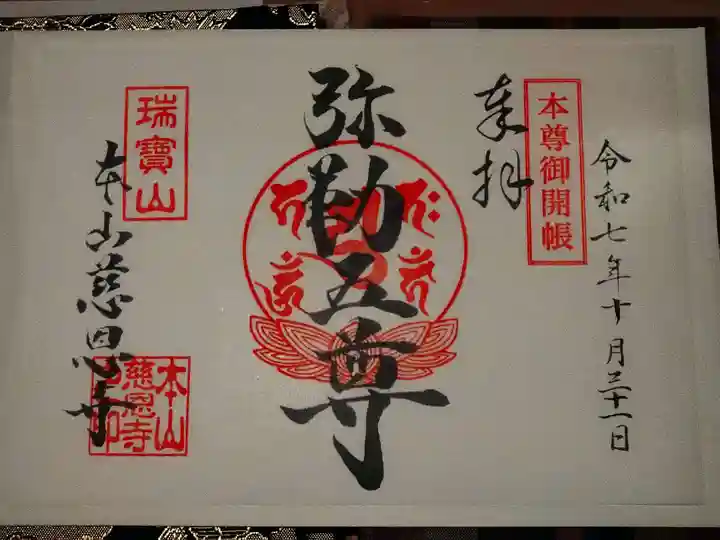 令和七年十月三十一日
本尊御開帳
奉拝
弥勒五尊
瑞寳山
本山慈恩寺
本山
慈恩寺
之印